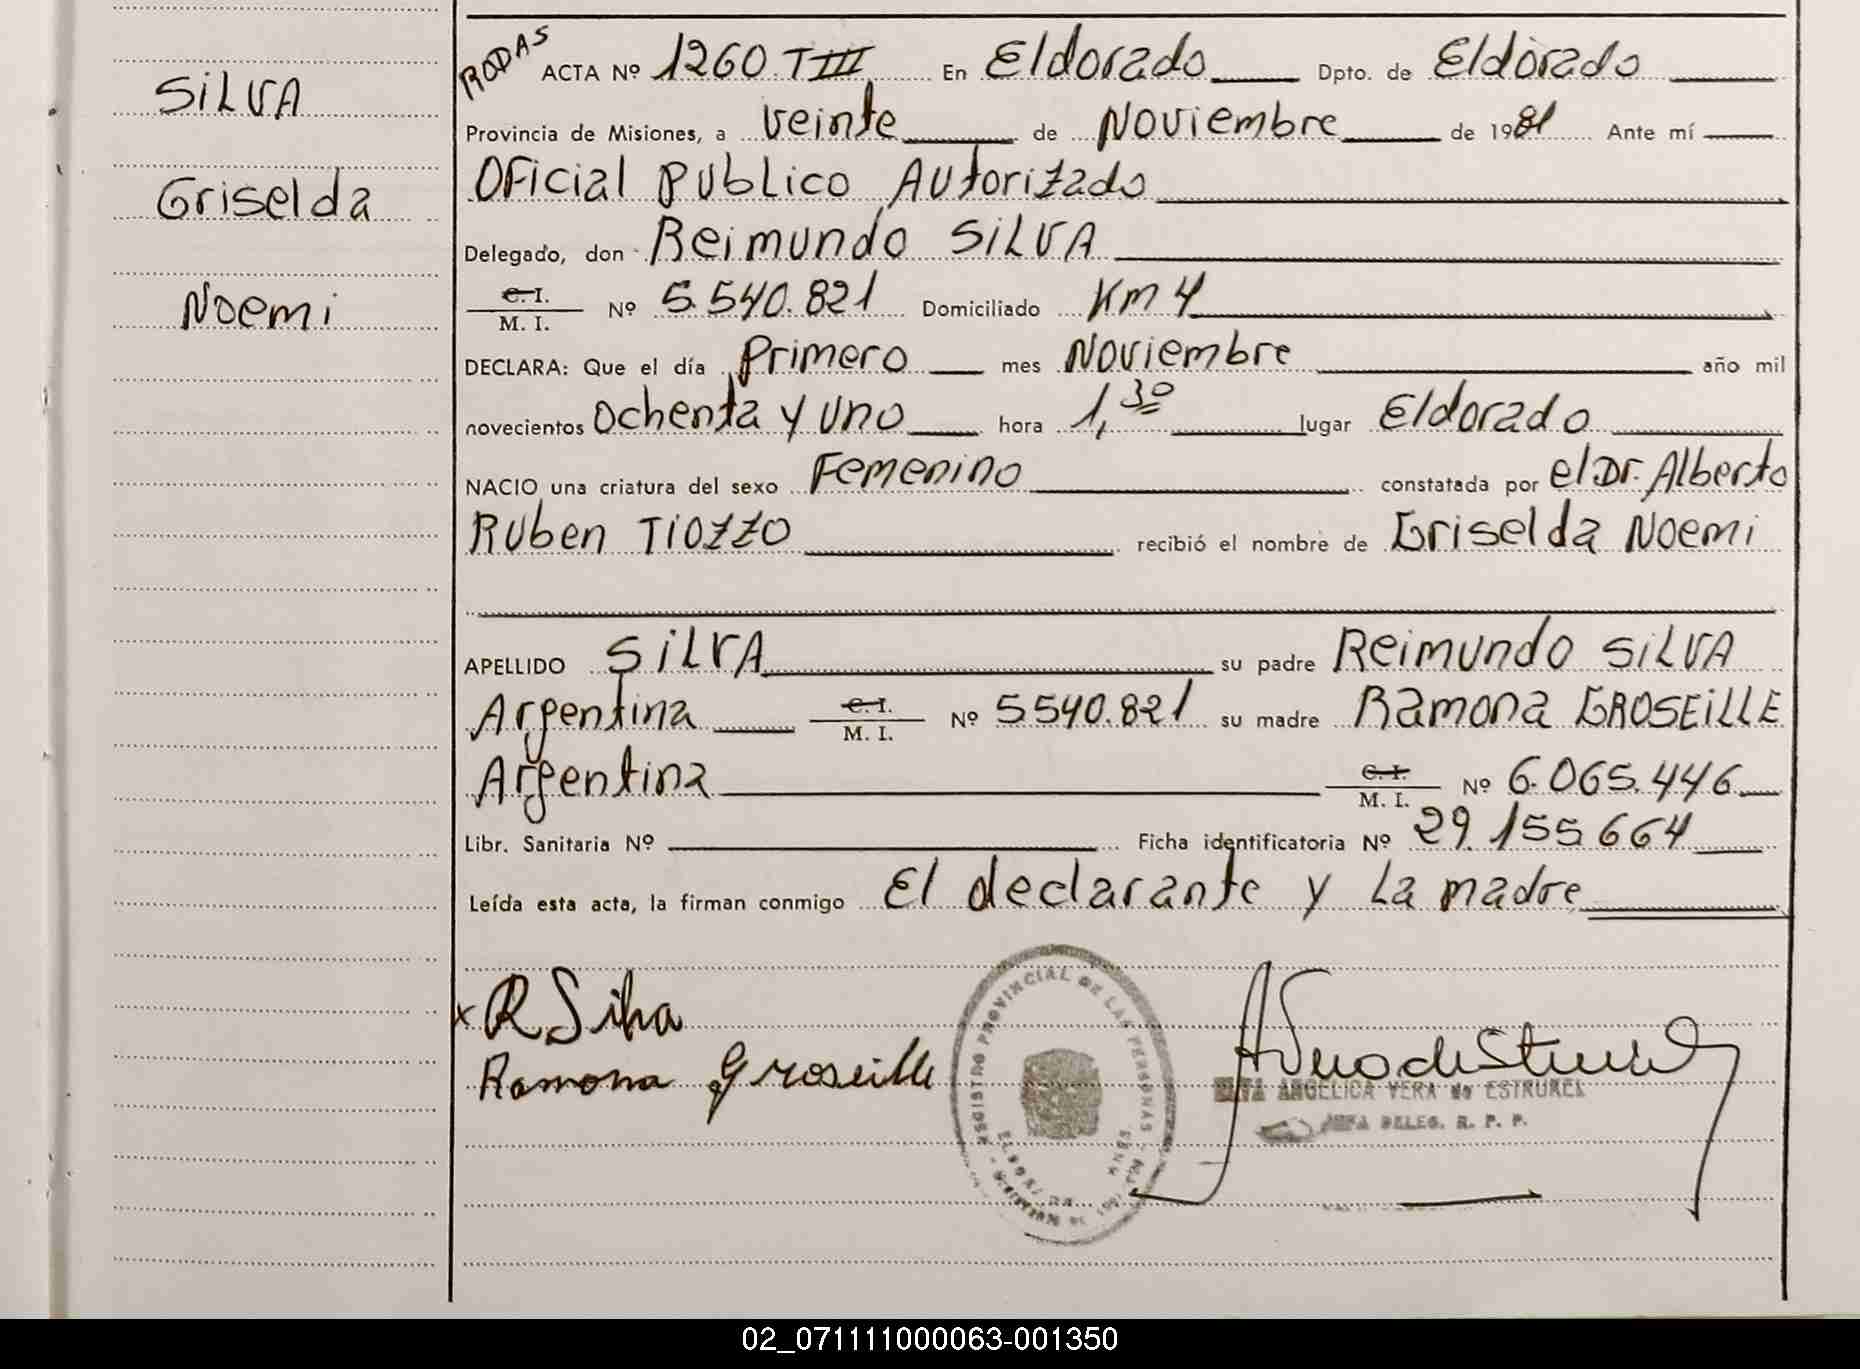 SILVA
Griselda
Noemi
RODAS
ACTA Nº 1260 TIII En Eldorado Dpto. de Eldorado
Provincia de Misiones, a veinte de Noviembre de 1981 Ante mí
Oficial Publico Autorizado
Delegado, don Reimundo SILVA
C. I.
M. I. Nº 5.540.821 Domiciliado Km 4
DECLARA: Que el día Primero mes Noviembre año mil
novecientos Ochenta y uno hora 1,30 lugar Eldorado
NACIO una criatura del sexo Femenino constatada por el Dr. Alberto
Ruben TIOZZO recibió el nombre de Griselda Noemi
APELLIDO SILVA su padre Reimundo SILVA
Argentina C. I. M. I. Nº 5.540.821 su madre Ramona GROSEILLE
Argentina C. I. M. I. Nº 6.065.446
Libr. Sanitaria Nº Ficha identificatoria Nº 29.155.664
Leída esta acta, la firman conmigo El declarante y La madre
x R Silva
Ramona Groseille
REGISTRO PROVINCIAL DE LAS PERSONAS
ANGELICA VERA de ESTRUKEL
JEFA DELEG. R. P. P.
02_071111000063-001350